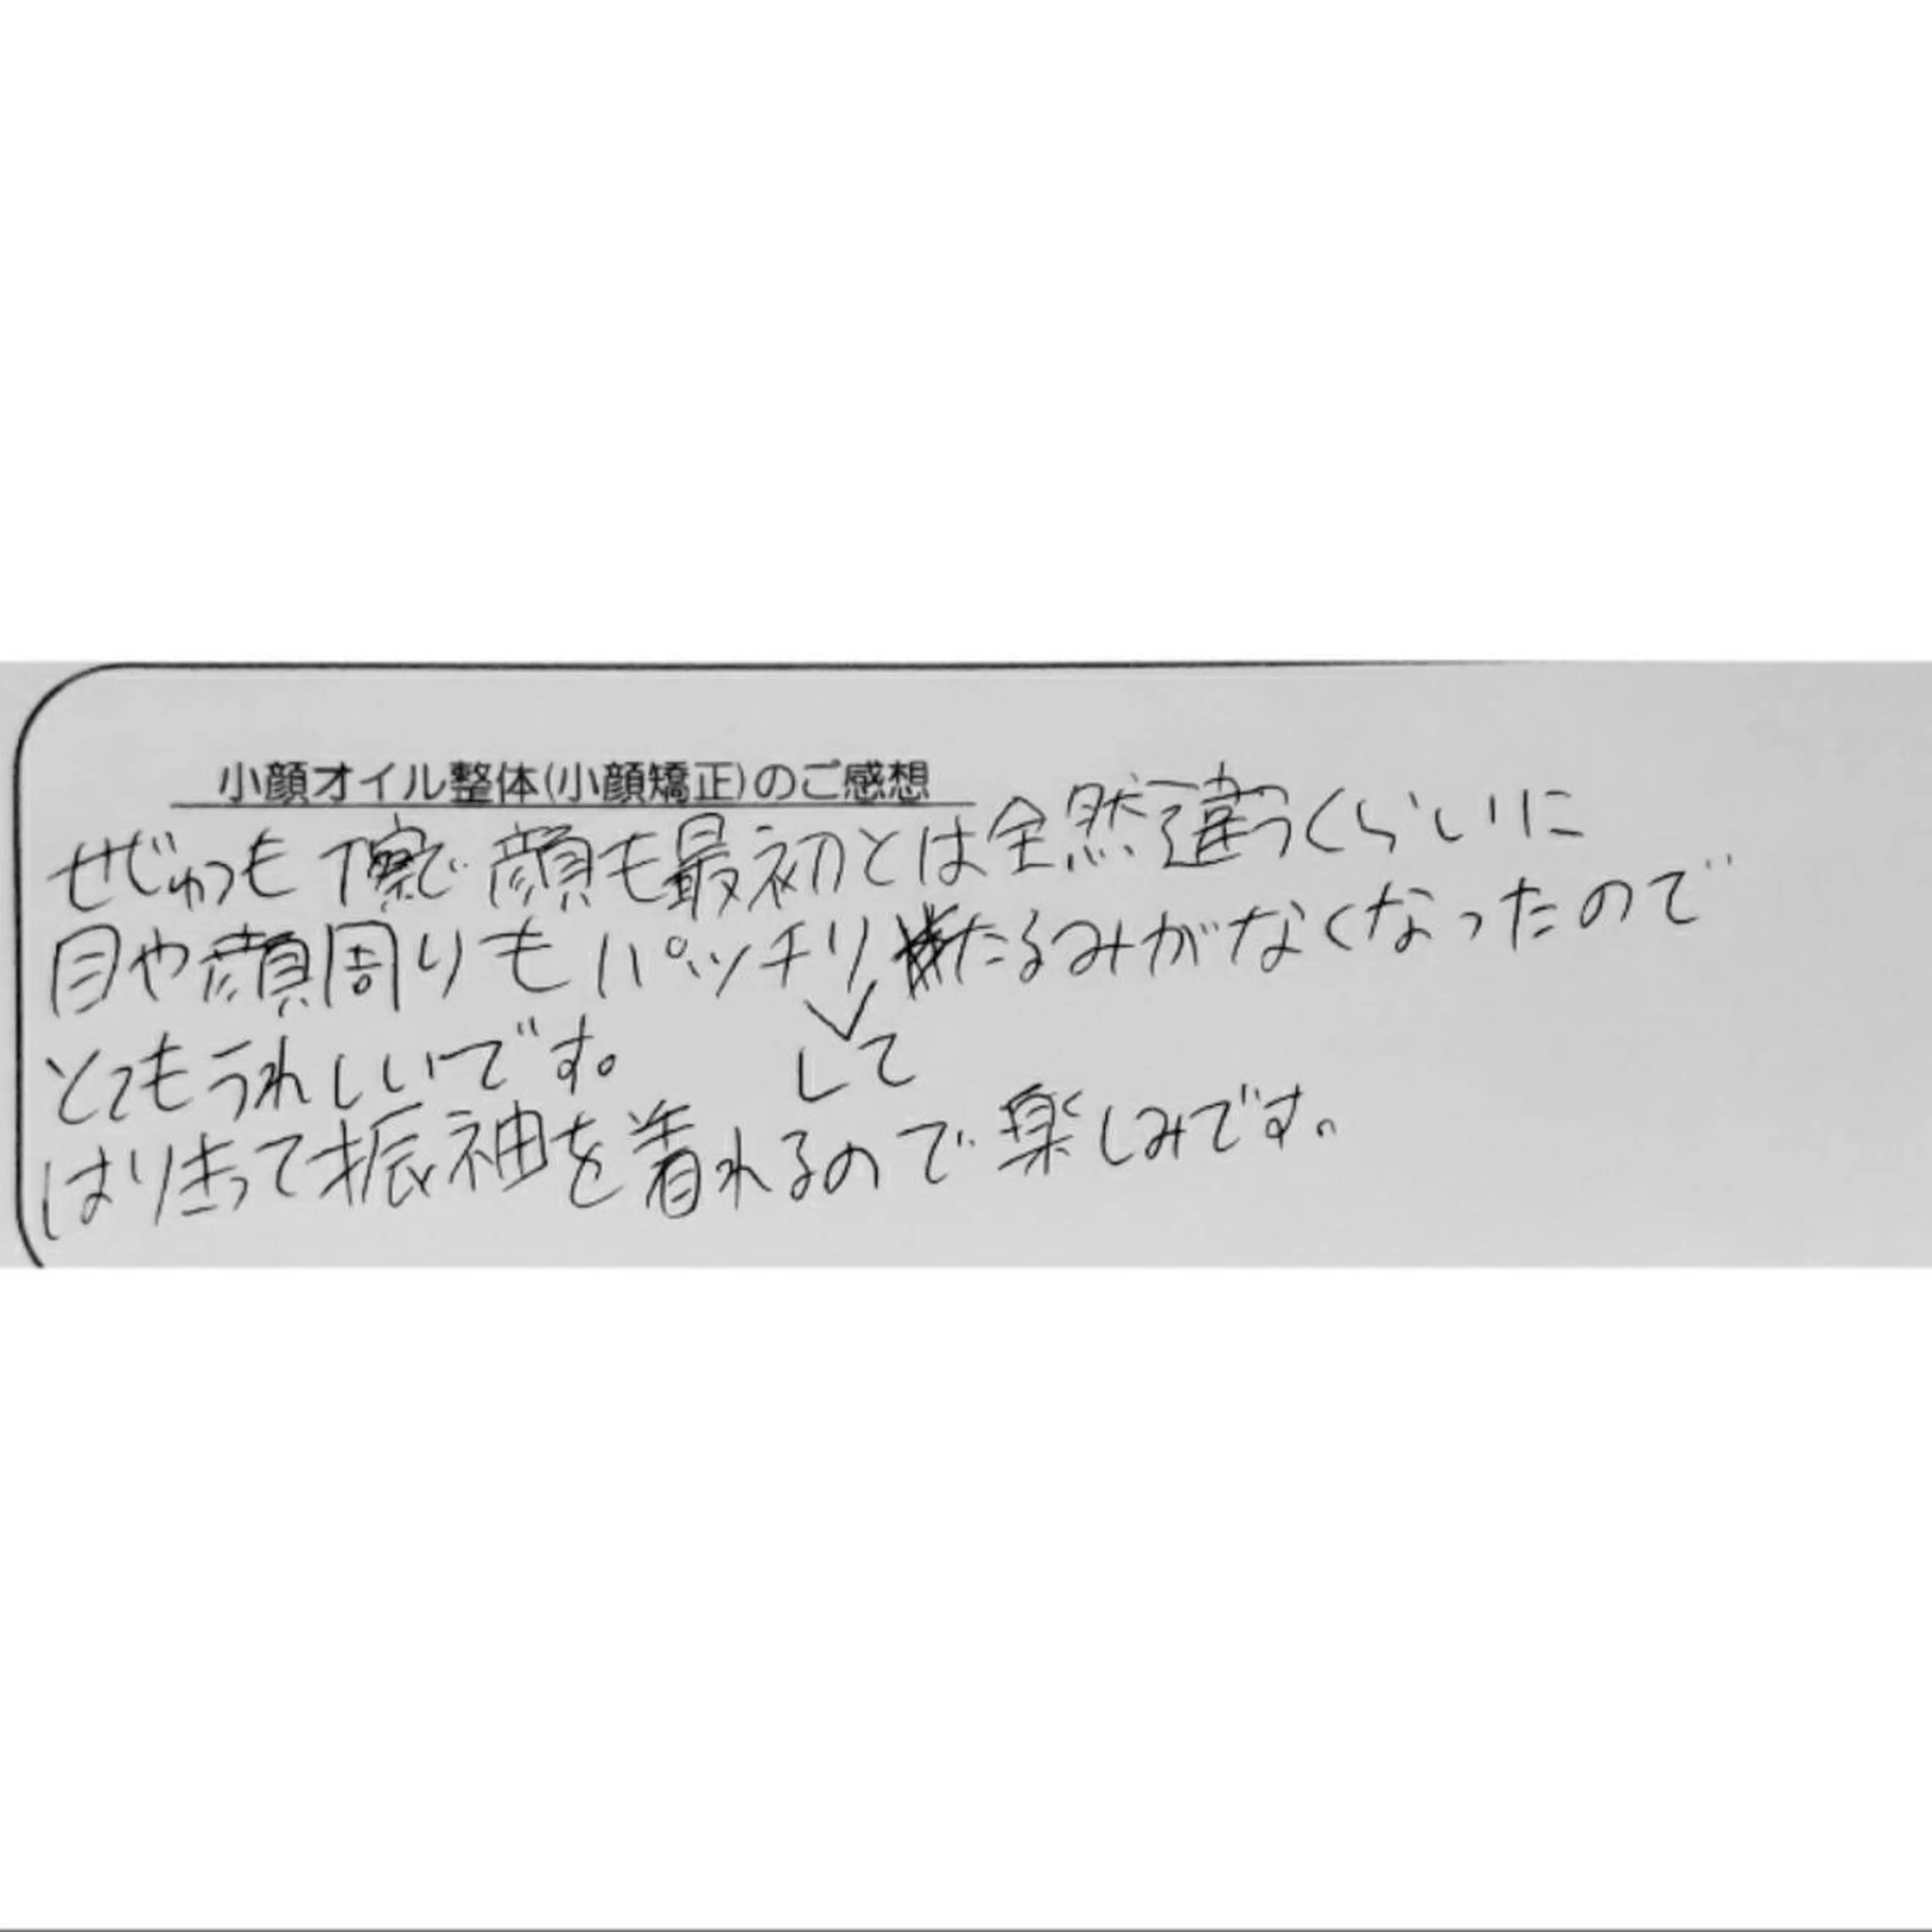 小顔オイル整体(小顔矯正)のご感想
せじゅつも丁寧で顔も最初とは全然違うくらいに
目や顔周りもパッチリしてたるみがなくなったので
とてもうれしいです。
はり切って振袖を着れるので楽しみです。